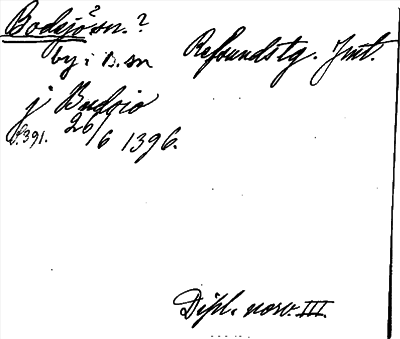 Bodsjö sn. ?
2
by i B. sn
Refsunds tg. Jmtl.
j Budsio
s. 391. 26/6 1396.
Dipl. norv. III.